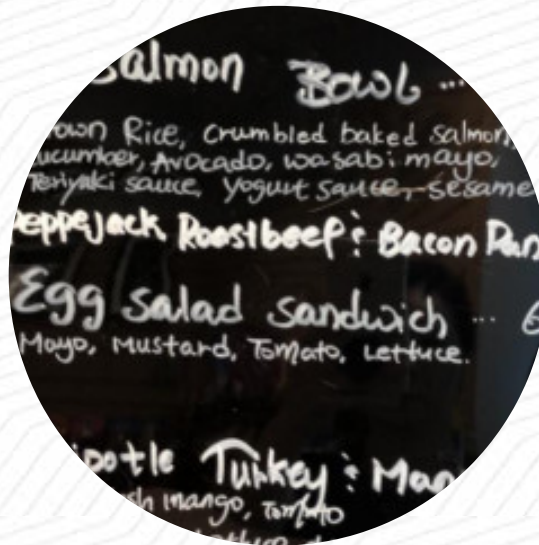 Salmon Bowl ...
own Rice, crumbled baked salmon,
ucumber, Avocado, wasabi mayo,
Teriyaki sauce, Yogurt sauce, sesame
eppejack Roastbeef & Bacon Pan
Egg Salad Sandwich ... 6
Mayo, Mustard, Tomato, Lettuce.
potle Turkey & Man
sh mango, Tomato